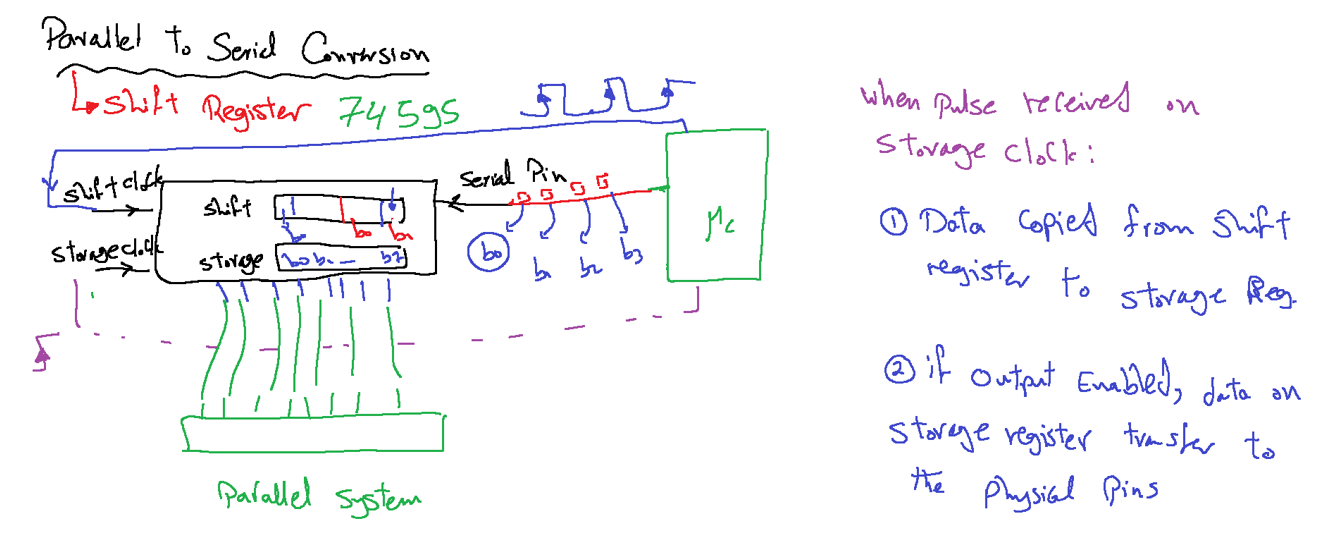 Parallel to Serial Conversion
Shift Register 74595
shift clock
storage clock
shift
b0 b1
storage
b0 b1 — b7
Serial Pin
b0 b1 b2 b3
μc
Parallel System
When pulse received on
storage clock:
① Data copied from shift
register to storage Reg.
② if Output Enabled, data on
storage register transfer to
the physical pins